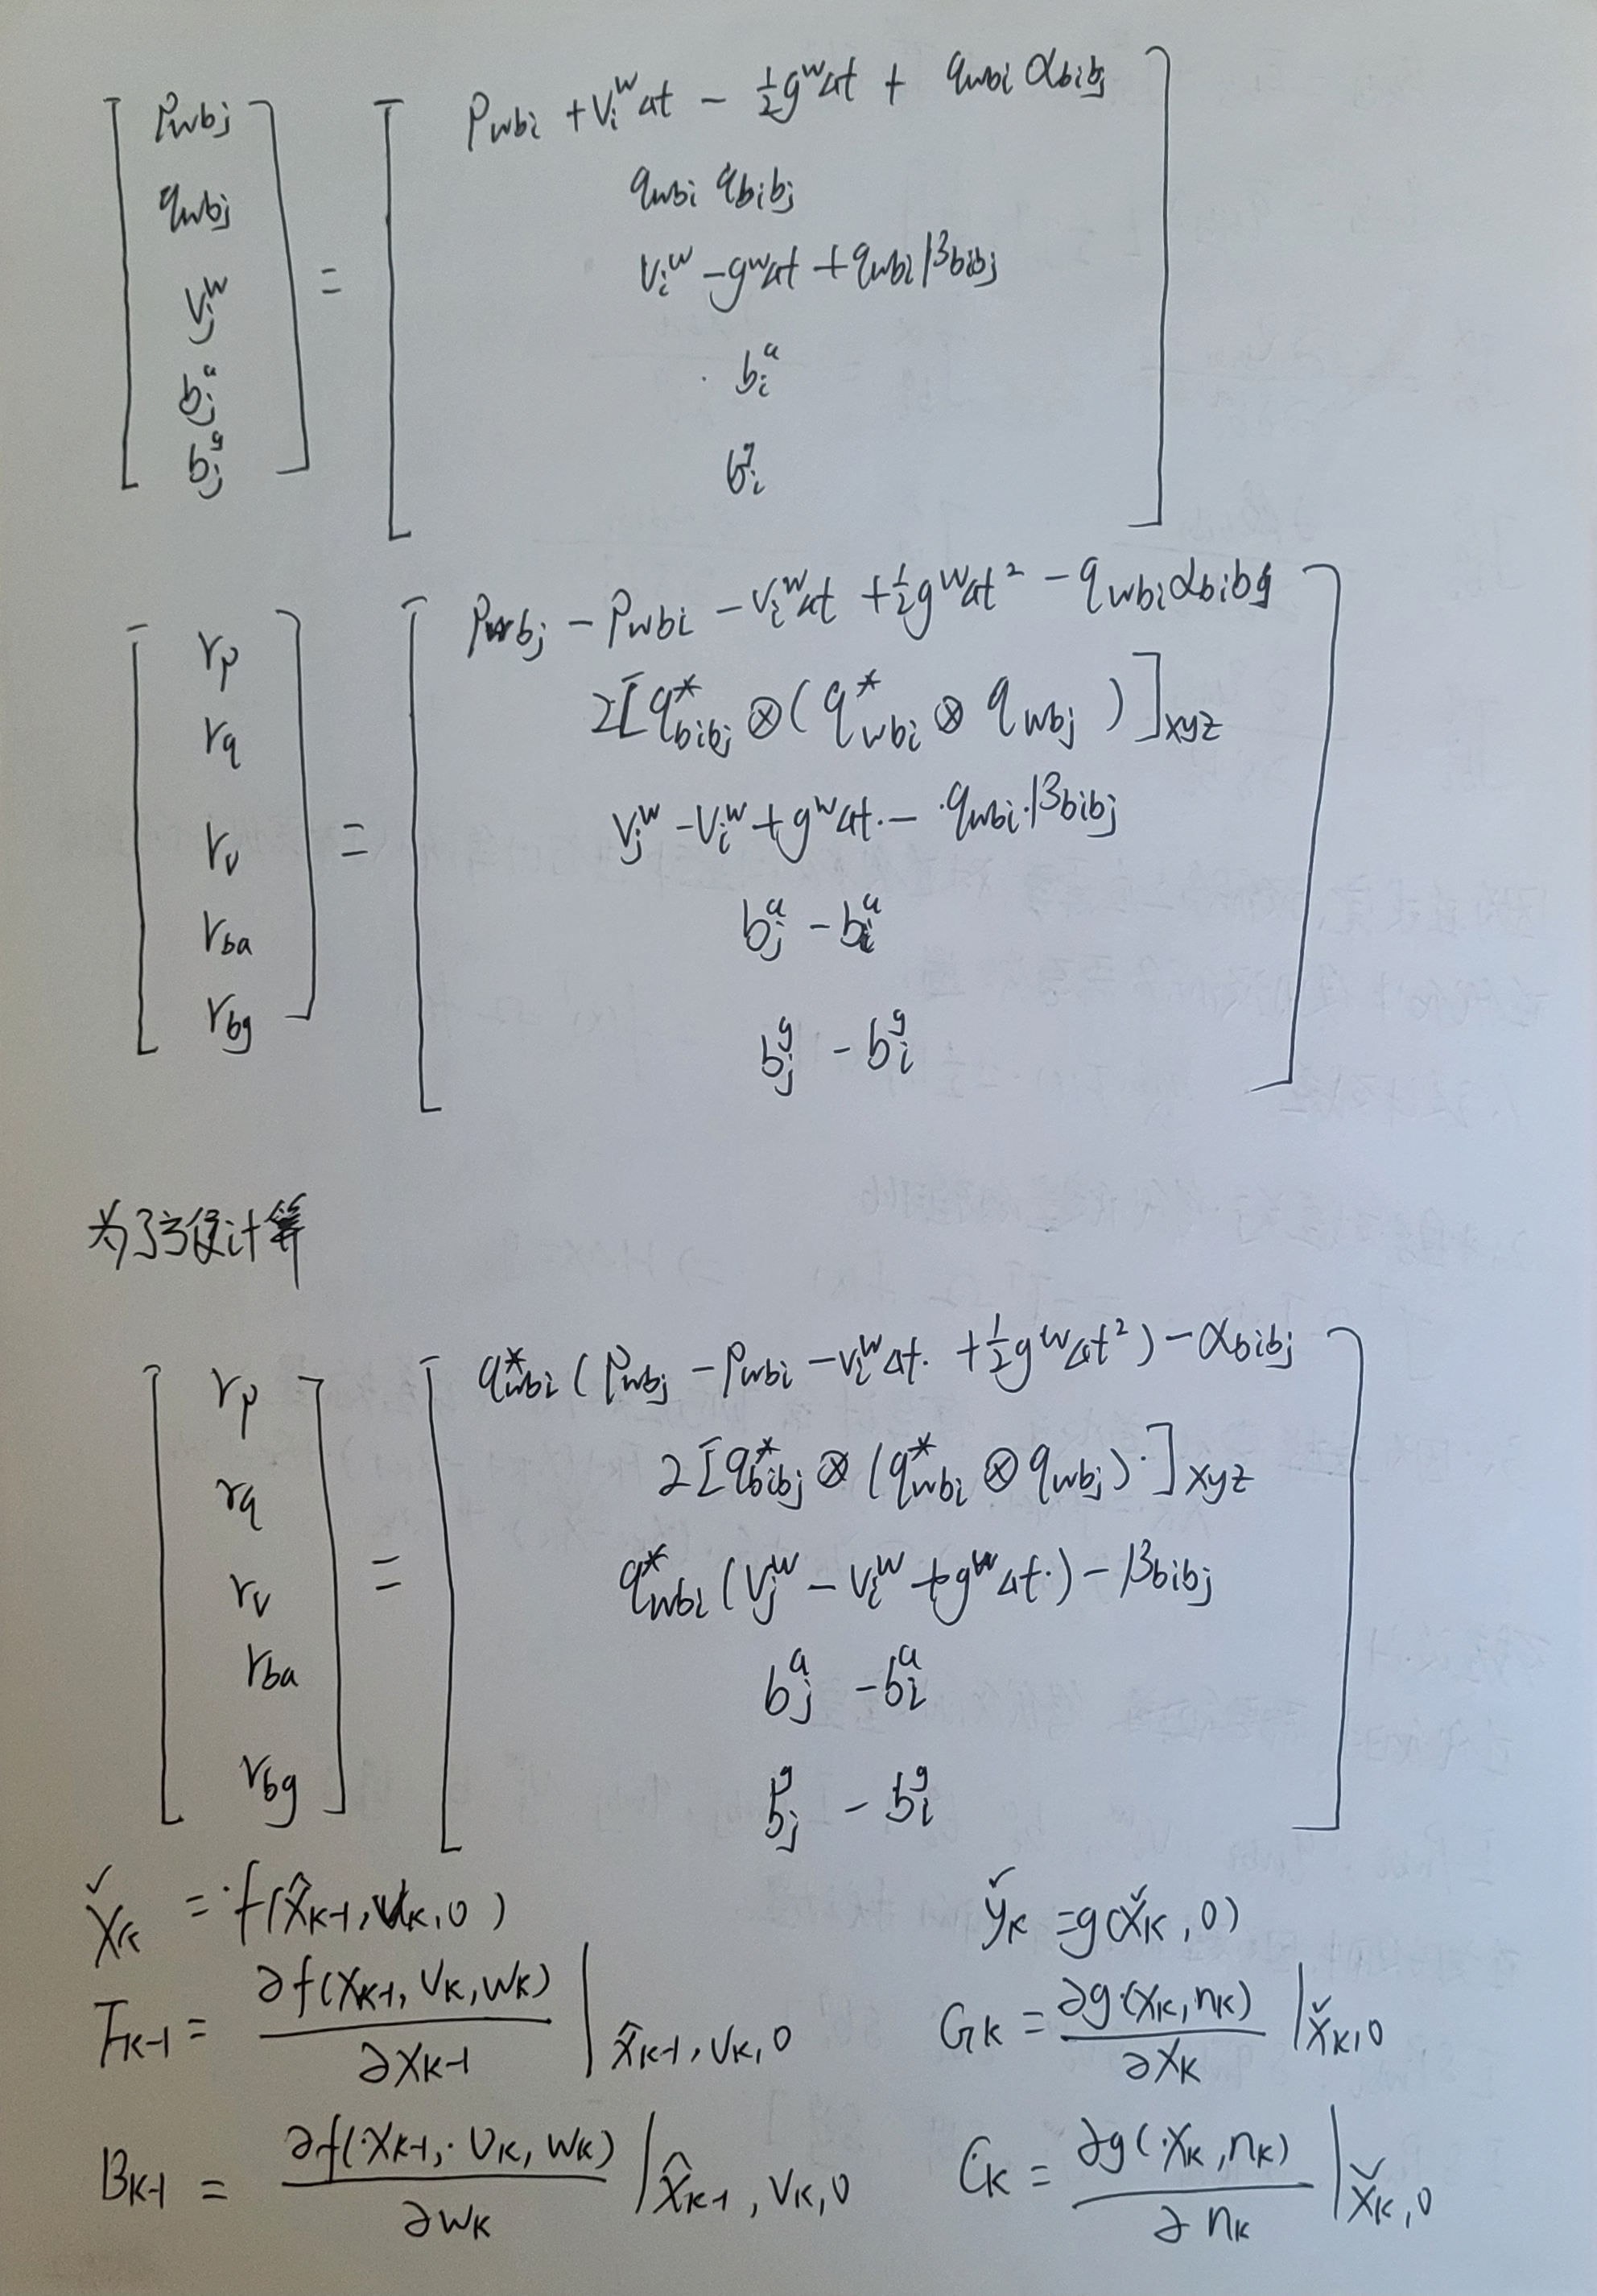 [ p_wbj ] = [ p_wbi + v_i^w Δt - ½ g^w Δt + q_wbi α_bibj ]
[ q_wbj ] [ q_wbi q_bibj ]
[ v_j^w ] [ v_i^w - g^w Δt + q_wbi β_bibj ]
[ b_j^a ] [ b_i^a ]
[ b_j^g ] [ b_i^g ]
[ r_p ] = [ p_wbj - p_wbi - v_i^w Δt + ½ g^w Δt² - q_wbi α_bibj ]
[ r_q ] [ 2[q*_bibj ⊗ (q*_wbi ⊗ q_wbj)]_xyz ]
[ r_v ] [ v_j^w - v_i^w + g^w Δt - q_wbi · β_bibj ]
[ r_ba ] [ b_j^a - b_i^a ]
[ r_bg ] [ b_j^g - b_i^g ]
为了方便计算
[ r_p ] = [ q*_wbi (p_wbj - p_wbi - v_i^w Δt + ½ g^w Δt²) - α_bibj ]
[ r_q ] [ 2[q*_bibj ⊗ (q*_wbi ⊗ q_wbj)]_xyz ]
[ r_v ] [ q*_wbi (v_j^w - v_i^w + g^w Δt) - β_bibj ]
[ r_ba ] [ b_j^a - b_i^a ]
[ r_bg ] [ b_j^g - b_i^g ]
x̌_k = f(x̂_k-1, v_k, 0) y̌_k = g(x̌_k, 0)
F_k-1 = ∂f(x_k-1, v_k, w_k) / ∂x_k-1 | x̂_k-1, v_k, 0 G_k = ∂g(x_k, n_k) / ∂x_k | x̌_k, 0
B_k-1 = ∂f(x_k-1, v_k, w_k) / ∂w_k | x̂_k-1, v_k, 0 C_k = ∂g(x_k, n_k) / ∂n_k | x̌_k, 0